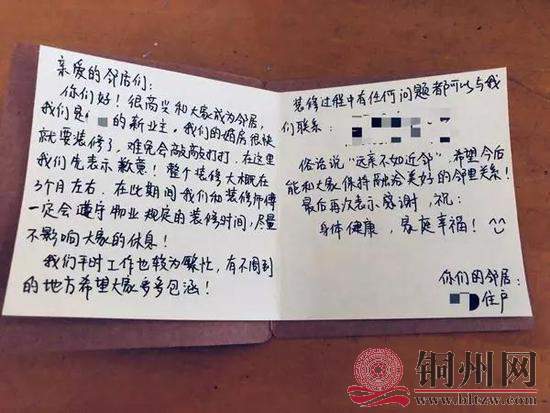 亲爱的邻居们：
你们好！很高兴和大家成为邻居，
我们是 的新业主，我们的婚房很快
就要装修了，难免会敲敲打打，在这里
我们先表示歉意！整个装修大概在
3个月左右，在此期间我们和装修师傅
一定会遵守物业规定的装修时间，尽量
不影响大家的休息！
我们平时工作也较为繁忙，有不周到
的地方希望大家多多包涵！
装修过程中有任何问题都可以与我
们联系：
俗话说“远亲不如近邻”，希望今后
能和大家保持融洽美好的邻里关系！
最后再次表示感谢，祝：
身体健康，家庭幸福！
你们的邻居：
住户
铜州网
www.bltzw.com